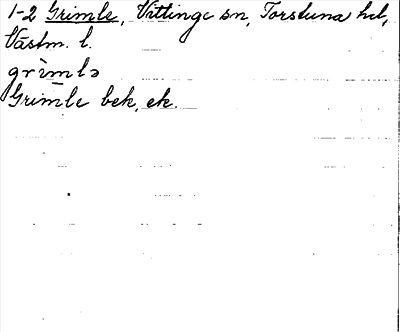 1-2 Grimle, Vittinge sn, Torstuna hd,
Västm. l.
grìmlə
Grimle bek, ek.